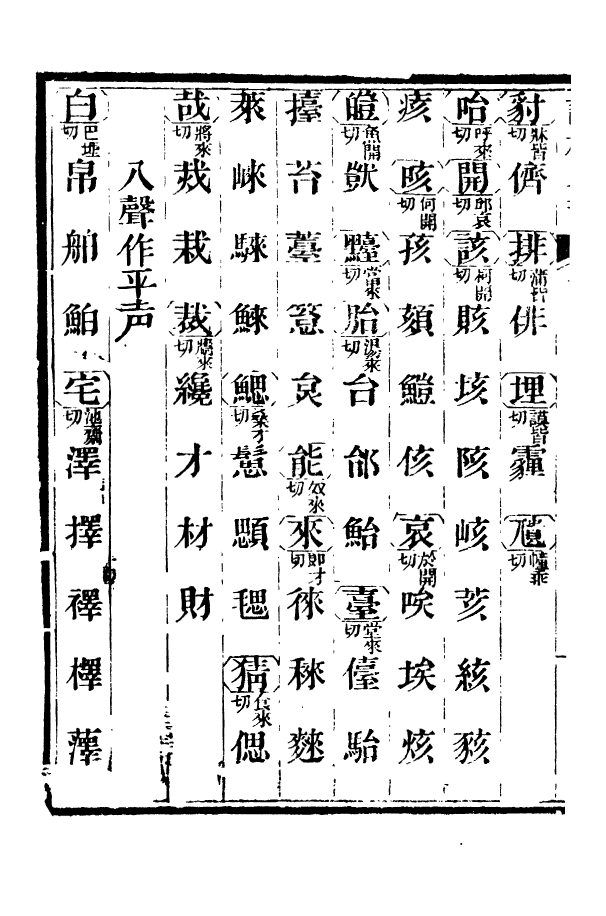 豺牀皆切儕排蒲皆切俳埋謨皆切霾
咍呼來切開邱哀切該柯開切賅垓陔峐荄絯豥
痎咳何開切孩頦侅哀於開切唉埃烗
皚魚開切獃臺當來切胎湯來切台邰鮐臺堂來切儓駘
擡苔薹炱能奴來切來郎才切徠秾
萊崍騋鯠鰓桑才切顋毸猜倉來切偲
哉將來切烖栽裁牆來切纔才材財
入聲作平声
白巴埋切帛舶鮊宅池齋切澤擇襗檡蘀